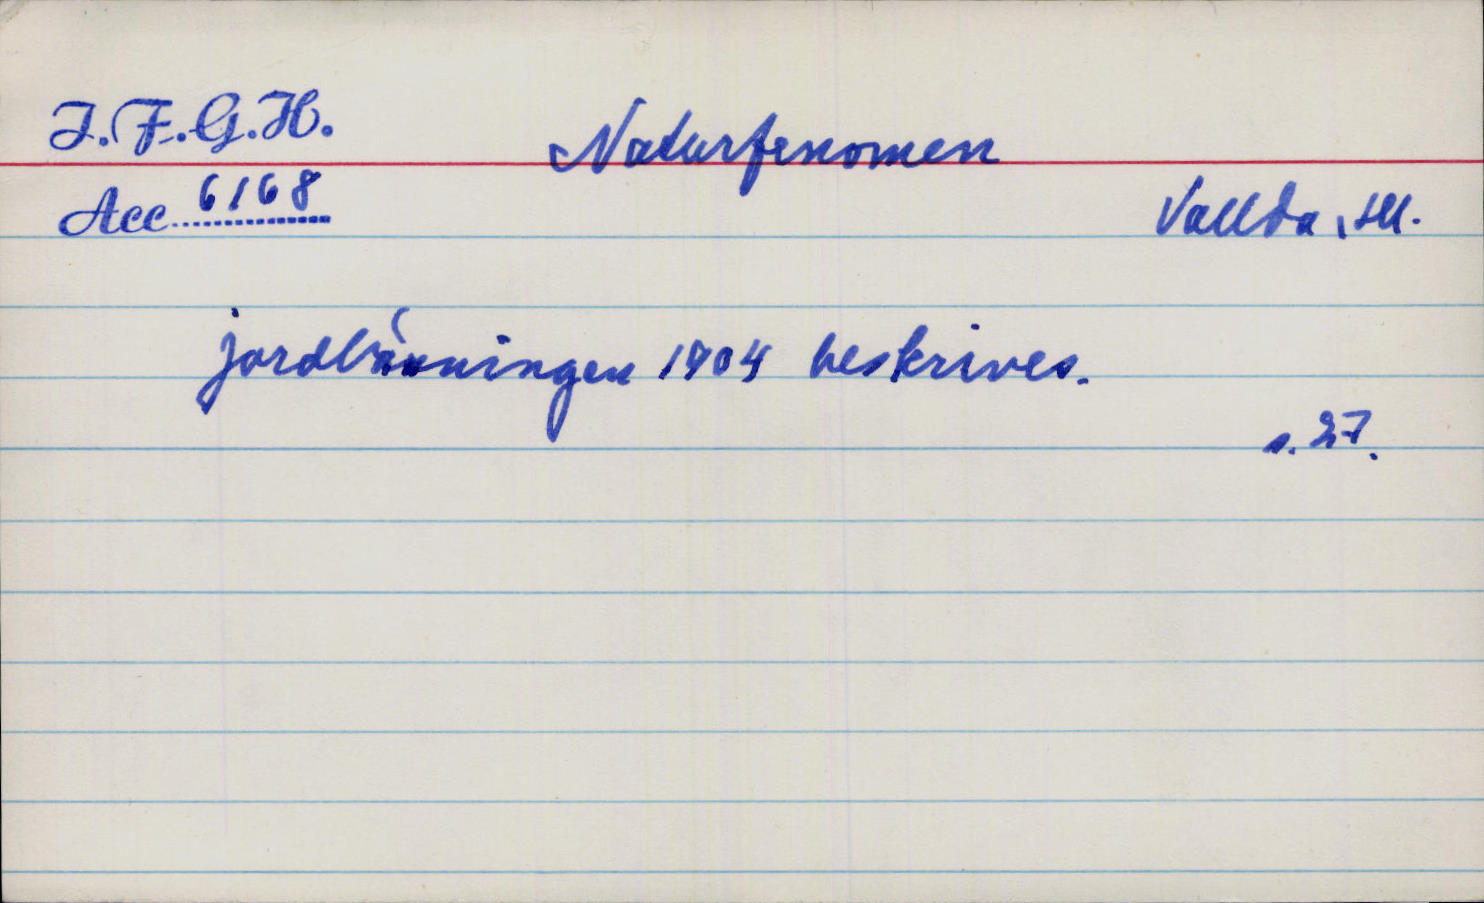 I.F.G.H.
Naturfenomen
Acc 6168
Vallda, Hll.
jordbävningen 1904 beskrives.
s. 27.